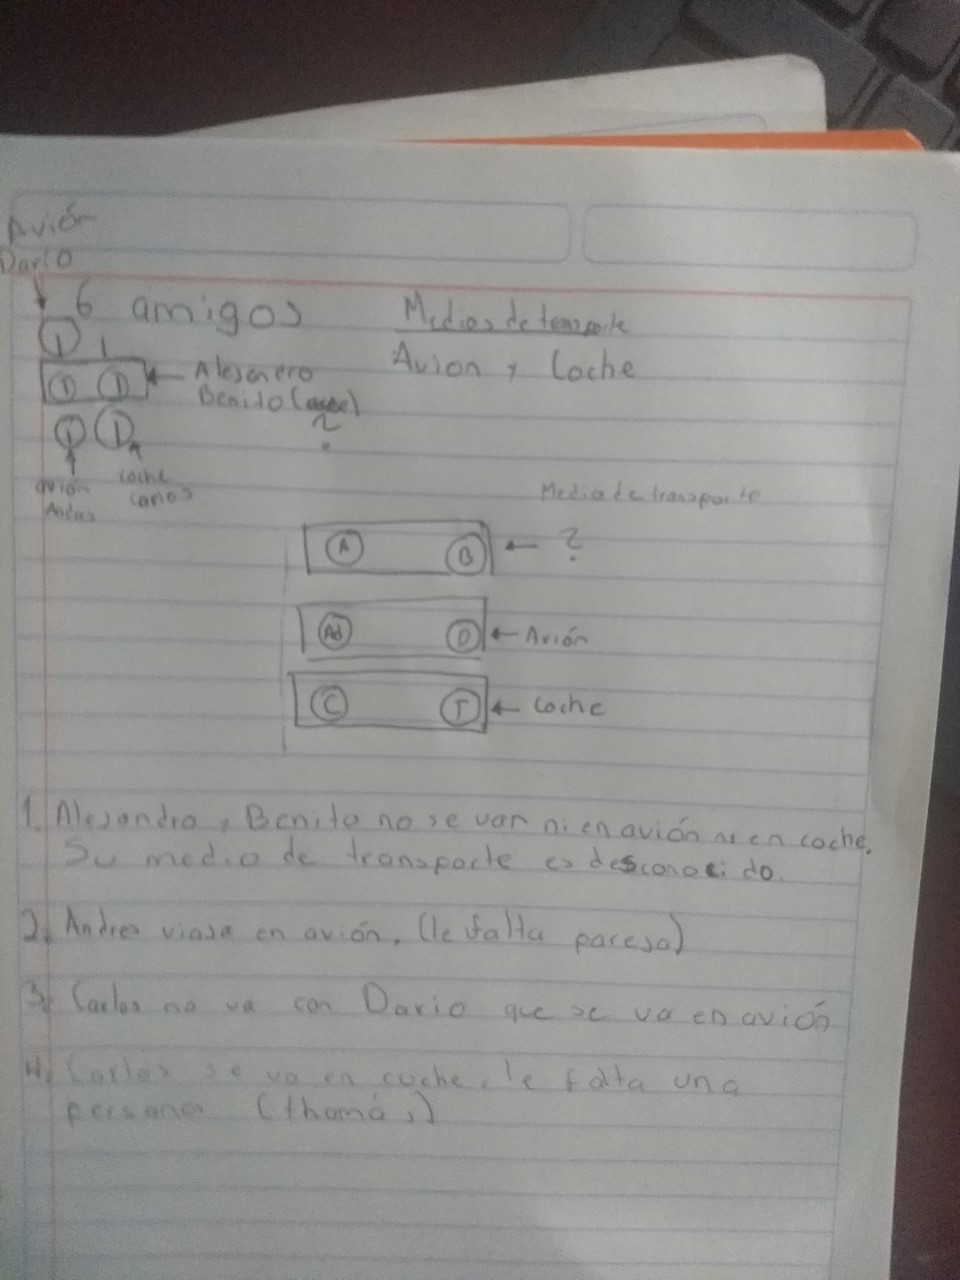 Avión
Dario
6 amigos
Medios de transporte
Avion y Coche
Benito
?
avión
coche
carlos
Medio de transporte
A B ← ?
Ad D ← Avión
C T ← Coche
1. Alejandro y Benito no se van ni en avión ni en coche.
Su medio de transporte es desconocido.
2. Andres viaja en avión, (le falta pareja)
3. Carlos no va con Dario que se va en avión
4. Carlos se va en coche, le falta una
persona (thomás)